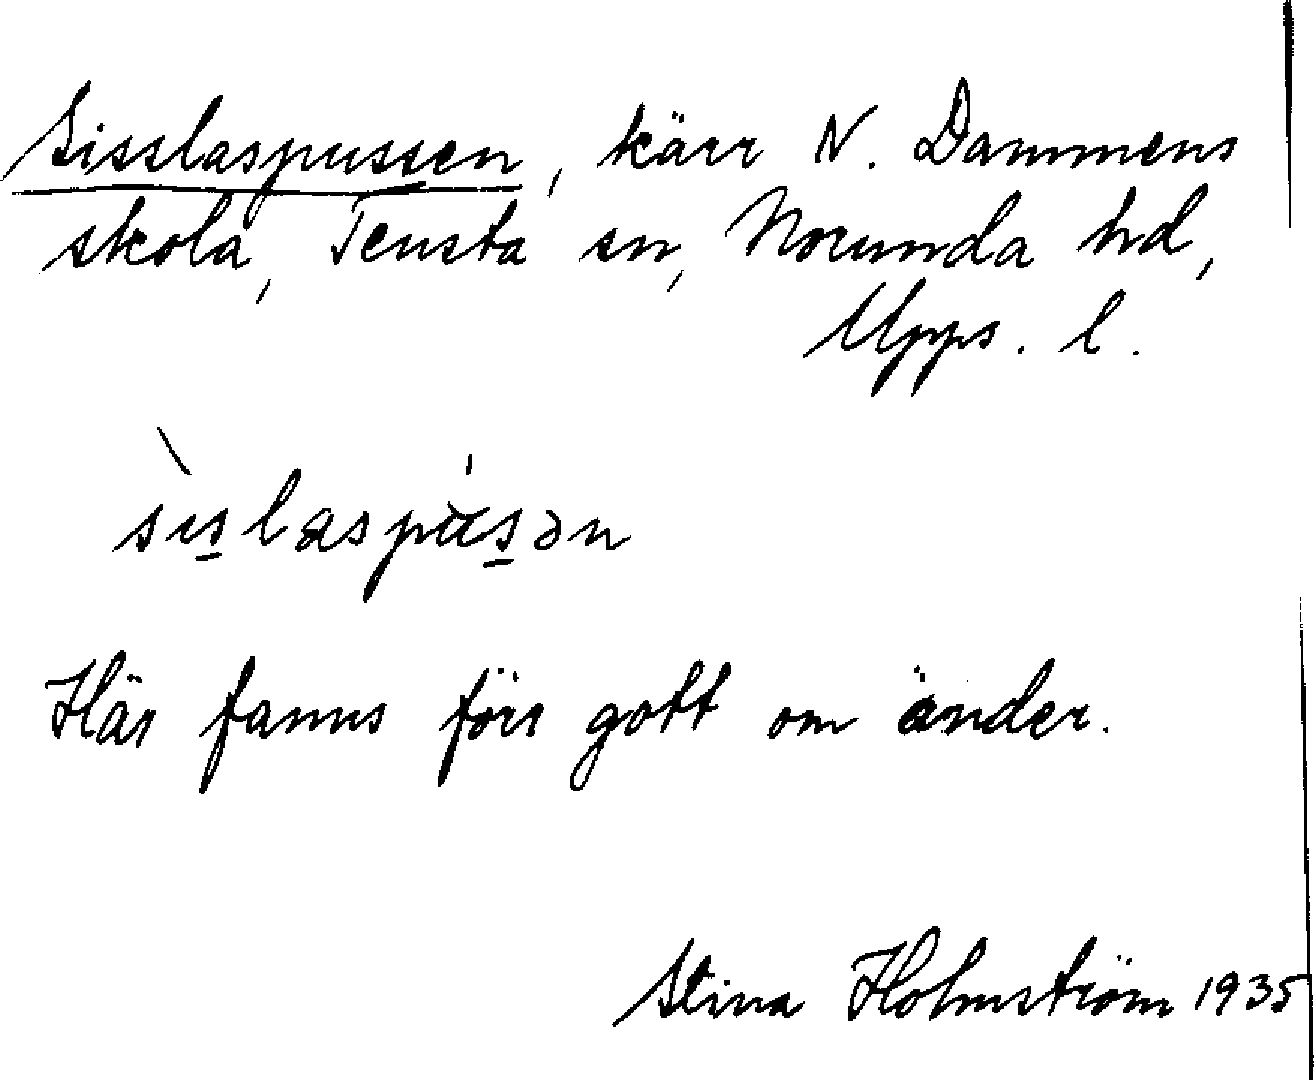 Sisslaspussen, kärr N. Dammens
skola, Tensta sn, Norunda hd,
Upps. l.
sıs̲laspùs̲ən
Här fanns förr gott om änder.
Stina Holmström 1935